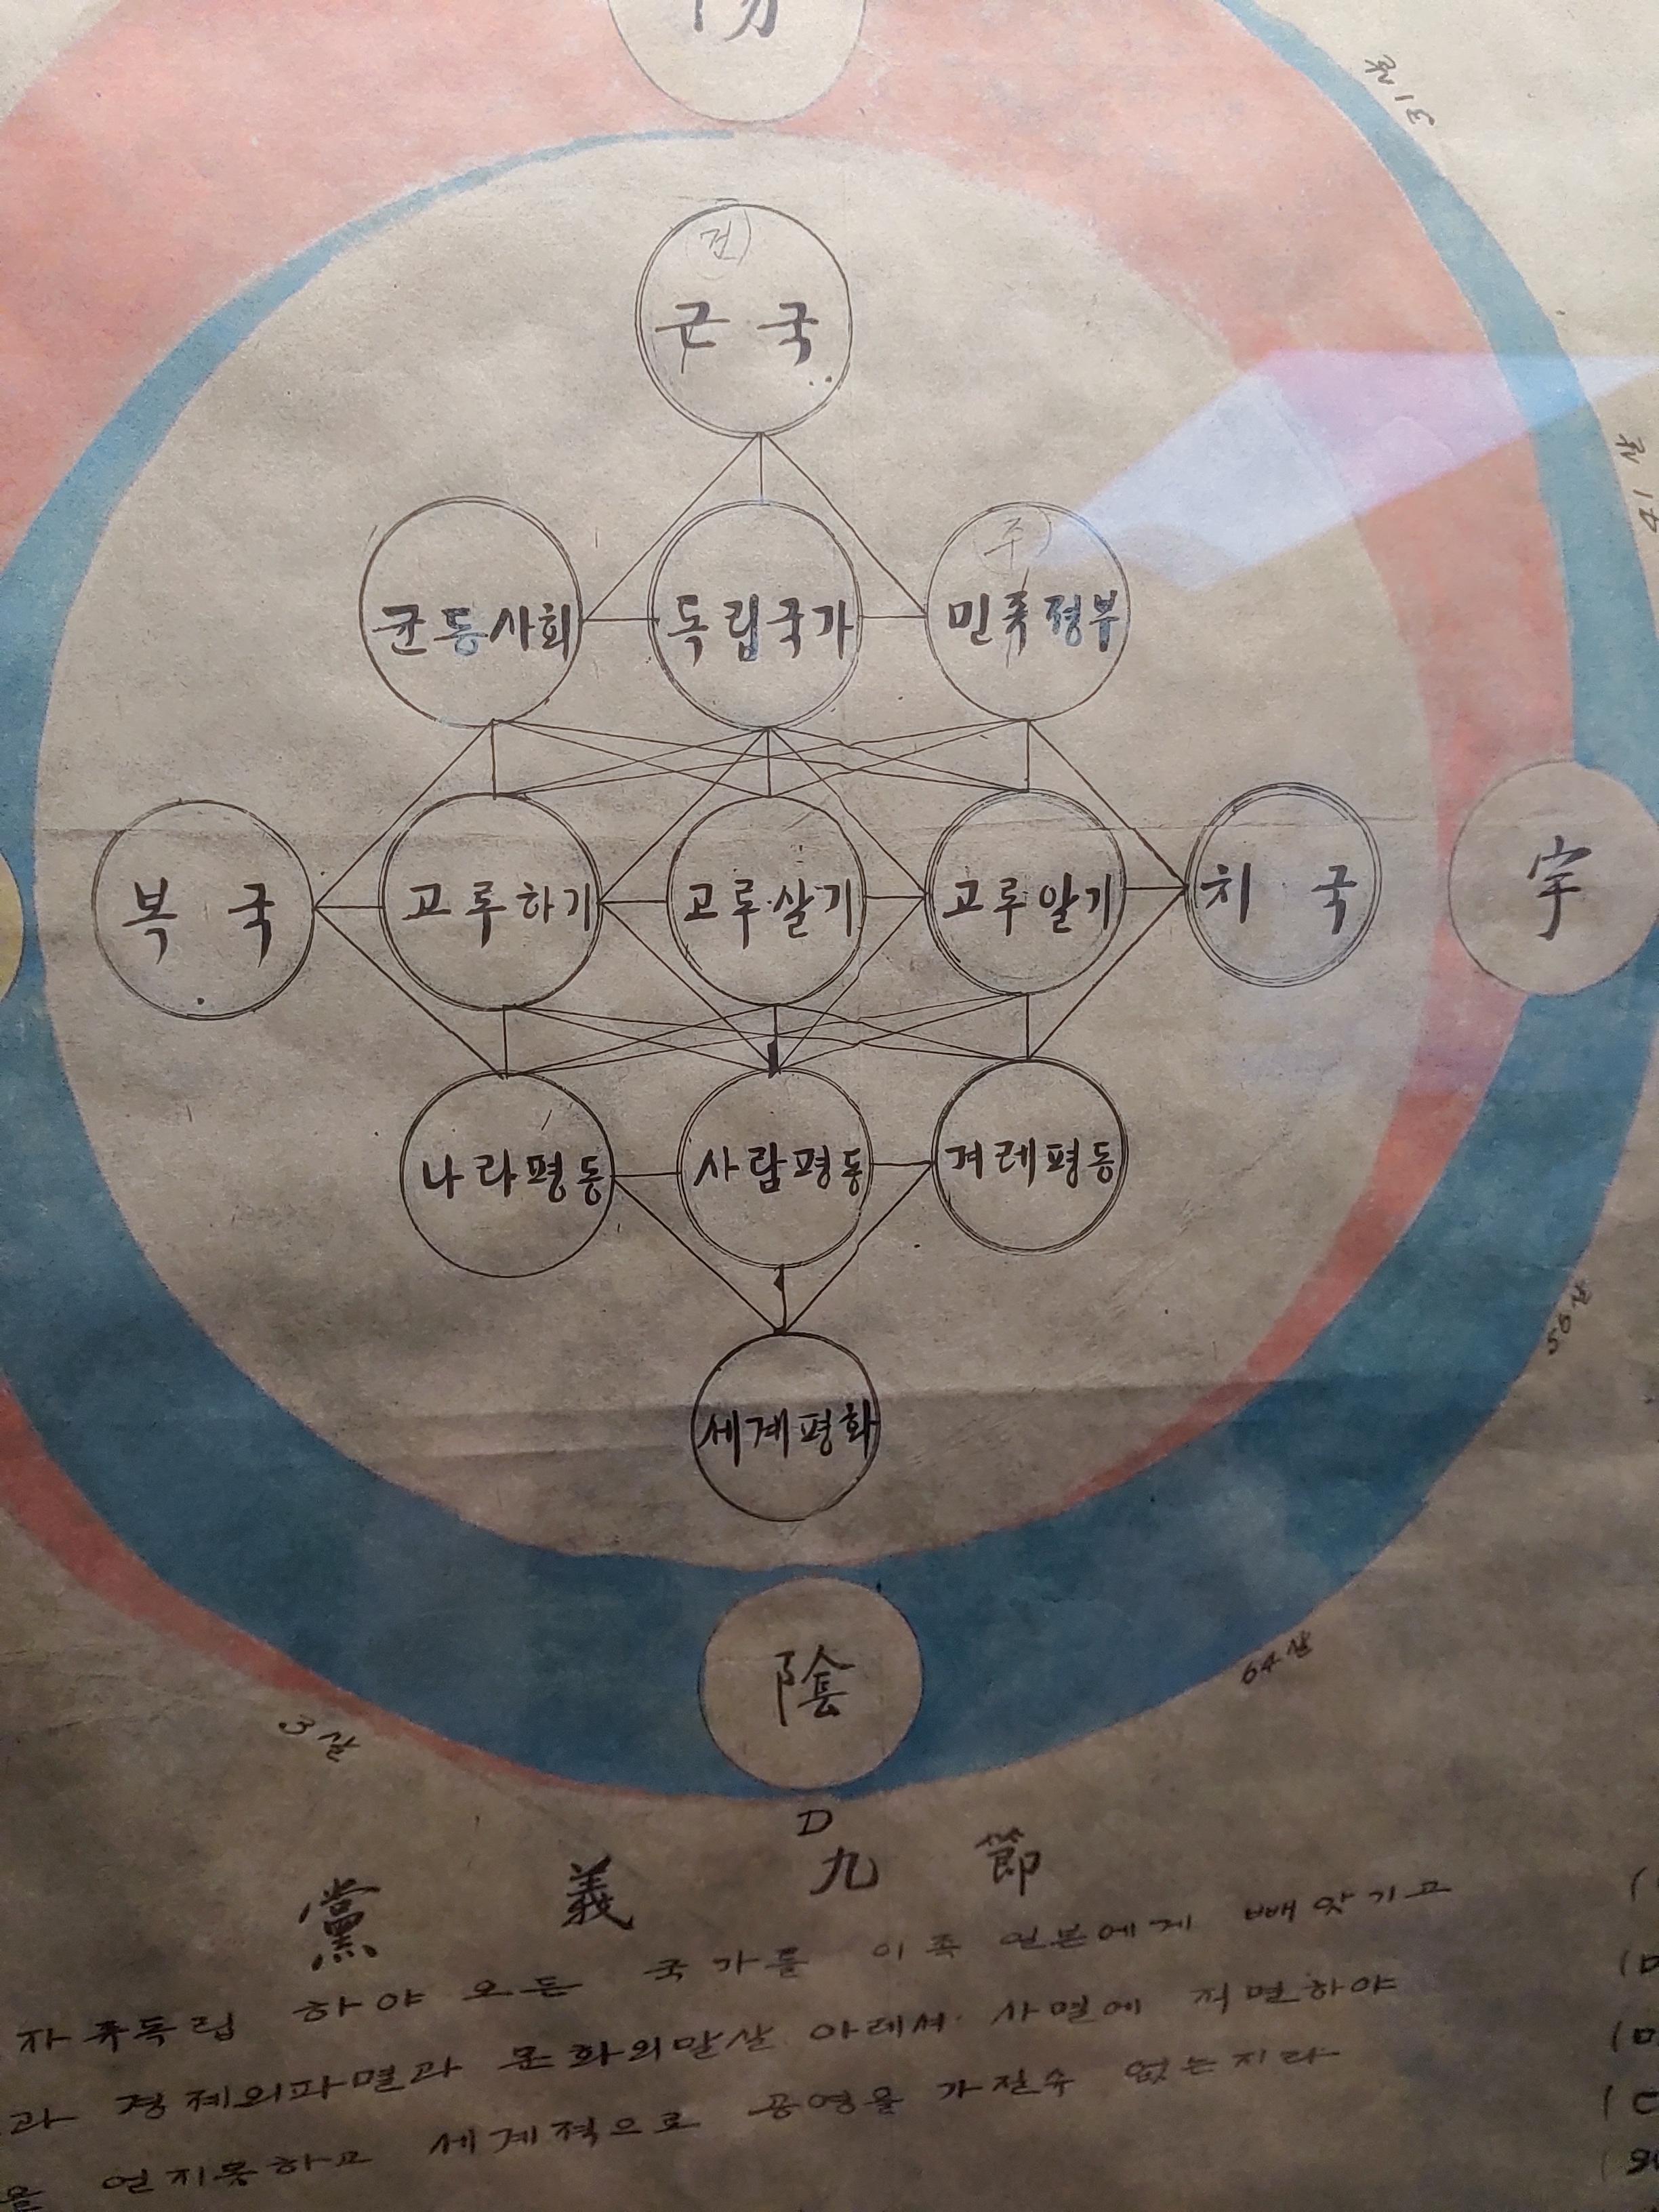 陽
31살
건
근 국
41살
주
균등사회 독립국가 민족정부
복 국 고루하기 고루살기 고루알기 치 국 宇
나라평등 사람평등 겨레평등
56살
세계평화
陰
64살
3살
D
黨 義 九 節
자주독립 하야 오든 국가를 이족 일본에게 빼앗기고
과 경제의파멸과 문화의말살 아레서 사멸에 직면하야
을 얻지못하고 세계적으로 공영을 가질수 없는지라